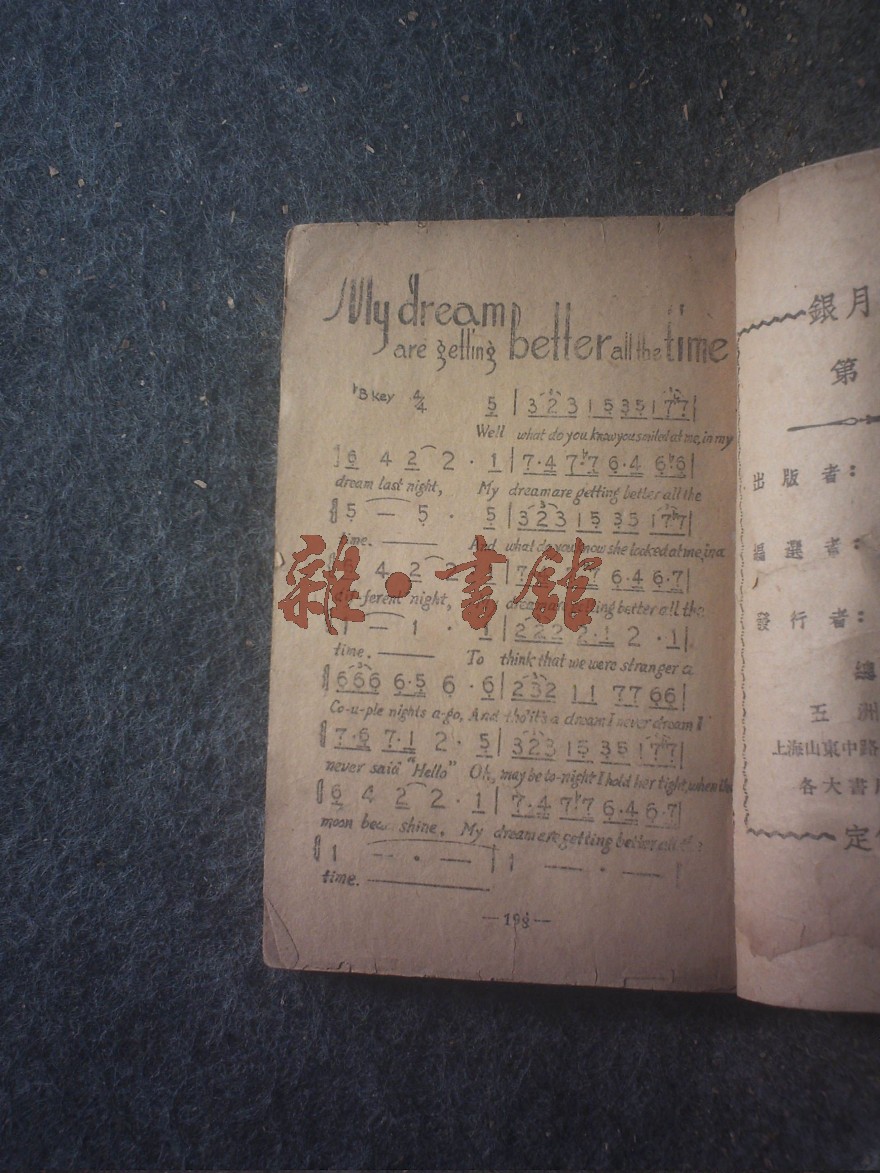 My dream
are getting better all the time
♭B key 4/4 5 | 3 2 3 1 5 3 5 1 7 7 |
Well what do you know you smiled at me, in my
6 4 2 2 · 1 | 7·4 7·♭7 6·4 6·♭6 |
dream last night, My dream are getting better all the
5 — 5 · 5 | 3 2 3 1 5 3 5 1 7 7 |
time. And what do you know she looked at me, in a
4 2
ferent night, getting better all the
1 — 1 · 1 | 2 2 2 2·1 2 · 1 |
time. To think that we were stranger a
6 6 6 6·5 6 · 6 | 2 3 2 1 1 7 7 6 6 |
Co-u-ple nights a-go, And tho' it's a dream I never dream I
7·6 7·1 2 · 5 | 3 2 3 1 5 3 5 1 7 7 |
never said "Hello" Oh, may be to-night I hold her tight, when the
6 4 2 2 · 1 | 7·4 7·♭7 6·4 6·7 |
moon shine. My dream are getting better all
1 — · — | 1 — · — |
time.
—198—
雜·書館
銀月
第
出版者：
編選者：
發行者：
總
五洲
上海山東中路
各大書
定